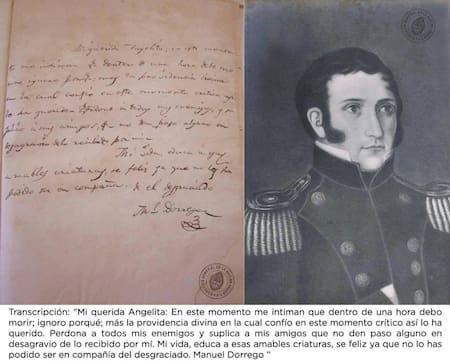 Mi querida Angelita: en este momen-
to me intiman q.e dentro de una hora debo mo-
rir; ignoro porqué; mas la providencia divina
en la cual confio en este momento critico asi lo
ha querido. Perdono a todos mis enemigos, y su-
plico a mis amigos, q.e no den paso alguno en
desagravio de lo recibido por mi.
Mi vida, educa a esas
amables criaturas, se feliz, ya que no lo has
podido ser en compañia de el desgraciado
M.l Dorrego
Transcripción: "Mi querida Angelita: En este momento me intiman que dentro de una hora debo
morir; ignoro porqué; más la providencia divina en la cual confío en este momento crítico así lo ha
querido. Perdona a todos mis enemigos y suplica a mis amigos que no den paso alguno en
desagravio de lo recibido por mí. Mi vida, educa a esas amables criaturas, se feliz ya que no lo has
podido ser en compañía del desgraciado. Manuel Dorrego "